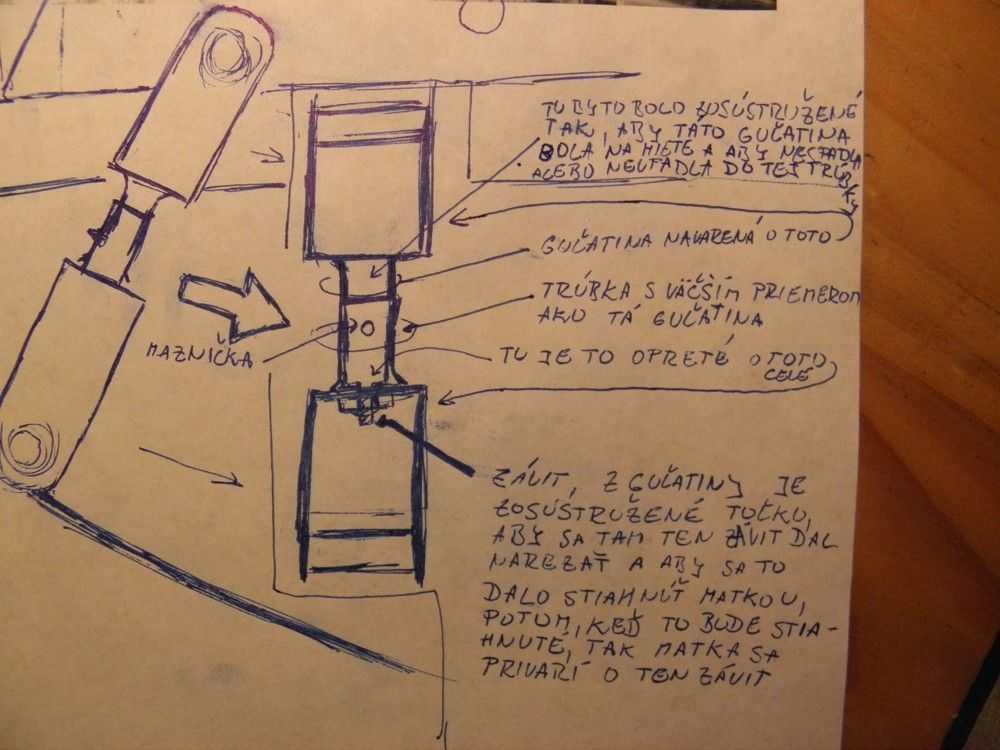 TU BY TO BOLO ZOSÚSTRUŽENÉ
TAK, ABY TÁTO GUČATINA
BOLA NA MIETE A ABY NESPADLA
ALEBO NEUPADLA DO TEJ TRÚBKY
GUČATINA NAVARENÁ O TOTO
TRÚBKA S VÄČŠÍM PRIEMEROM
AKO TÁ GUČATINA
MAZNIČKA
TU JE TO OPRETÉ O TOTO
CELÉ
ZÁVIT, Z GUČATINY JE
ZOSÚSTRUŽENÉ TOĽKO,
ABY SA TAM TEN ZÁVIT DAL
NAREZAŤ A ABY SA TO
DALO STIAHNÚŤ MATKOU,
POTOM, KEĎ TO BUDE STIA-
HNUTÉ, TAK MATKA SA
PRIVARÍ O TEN ZÁVIT